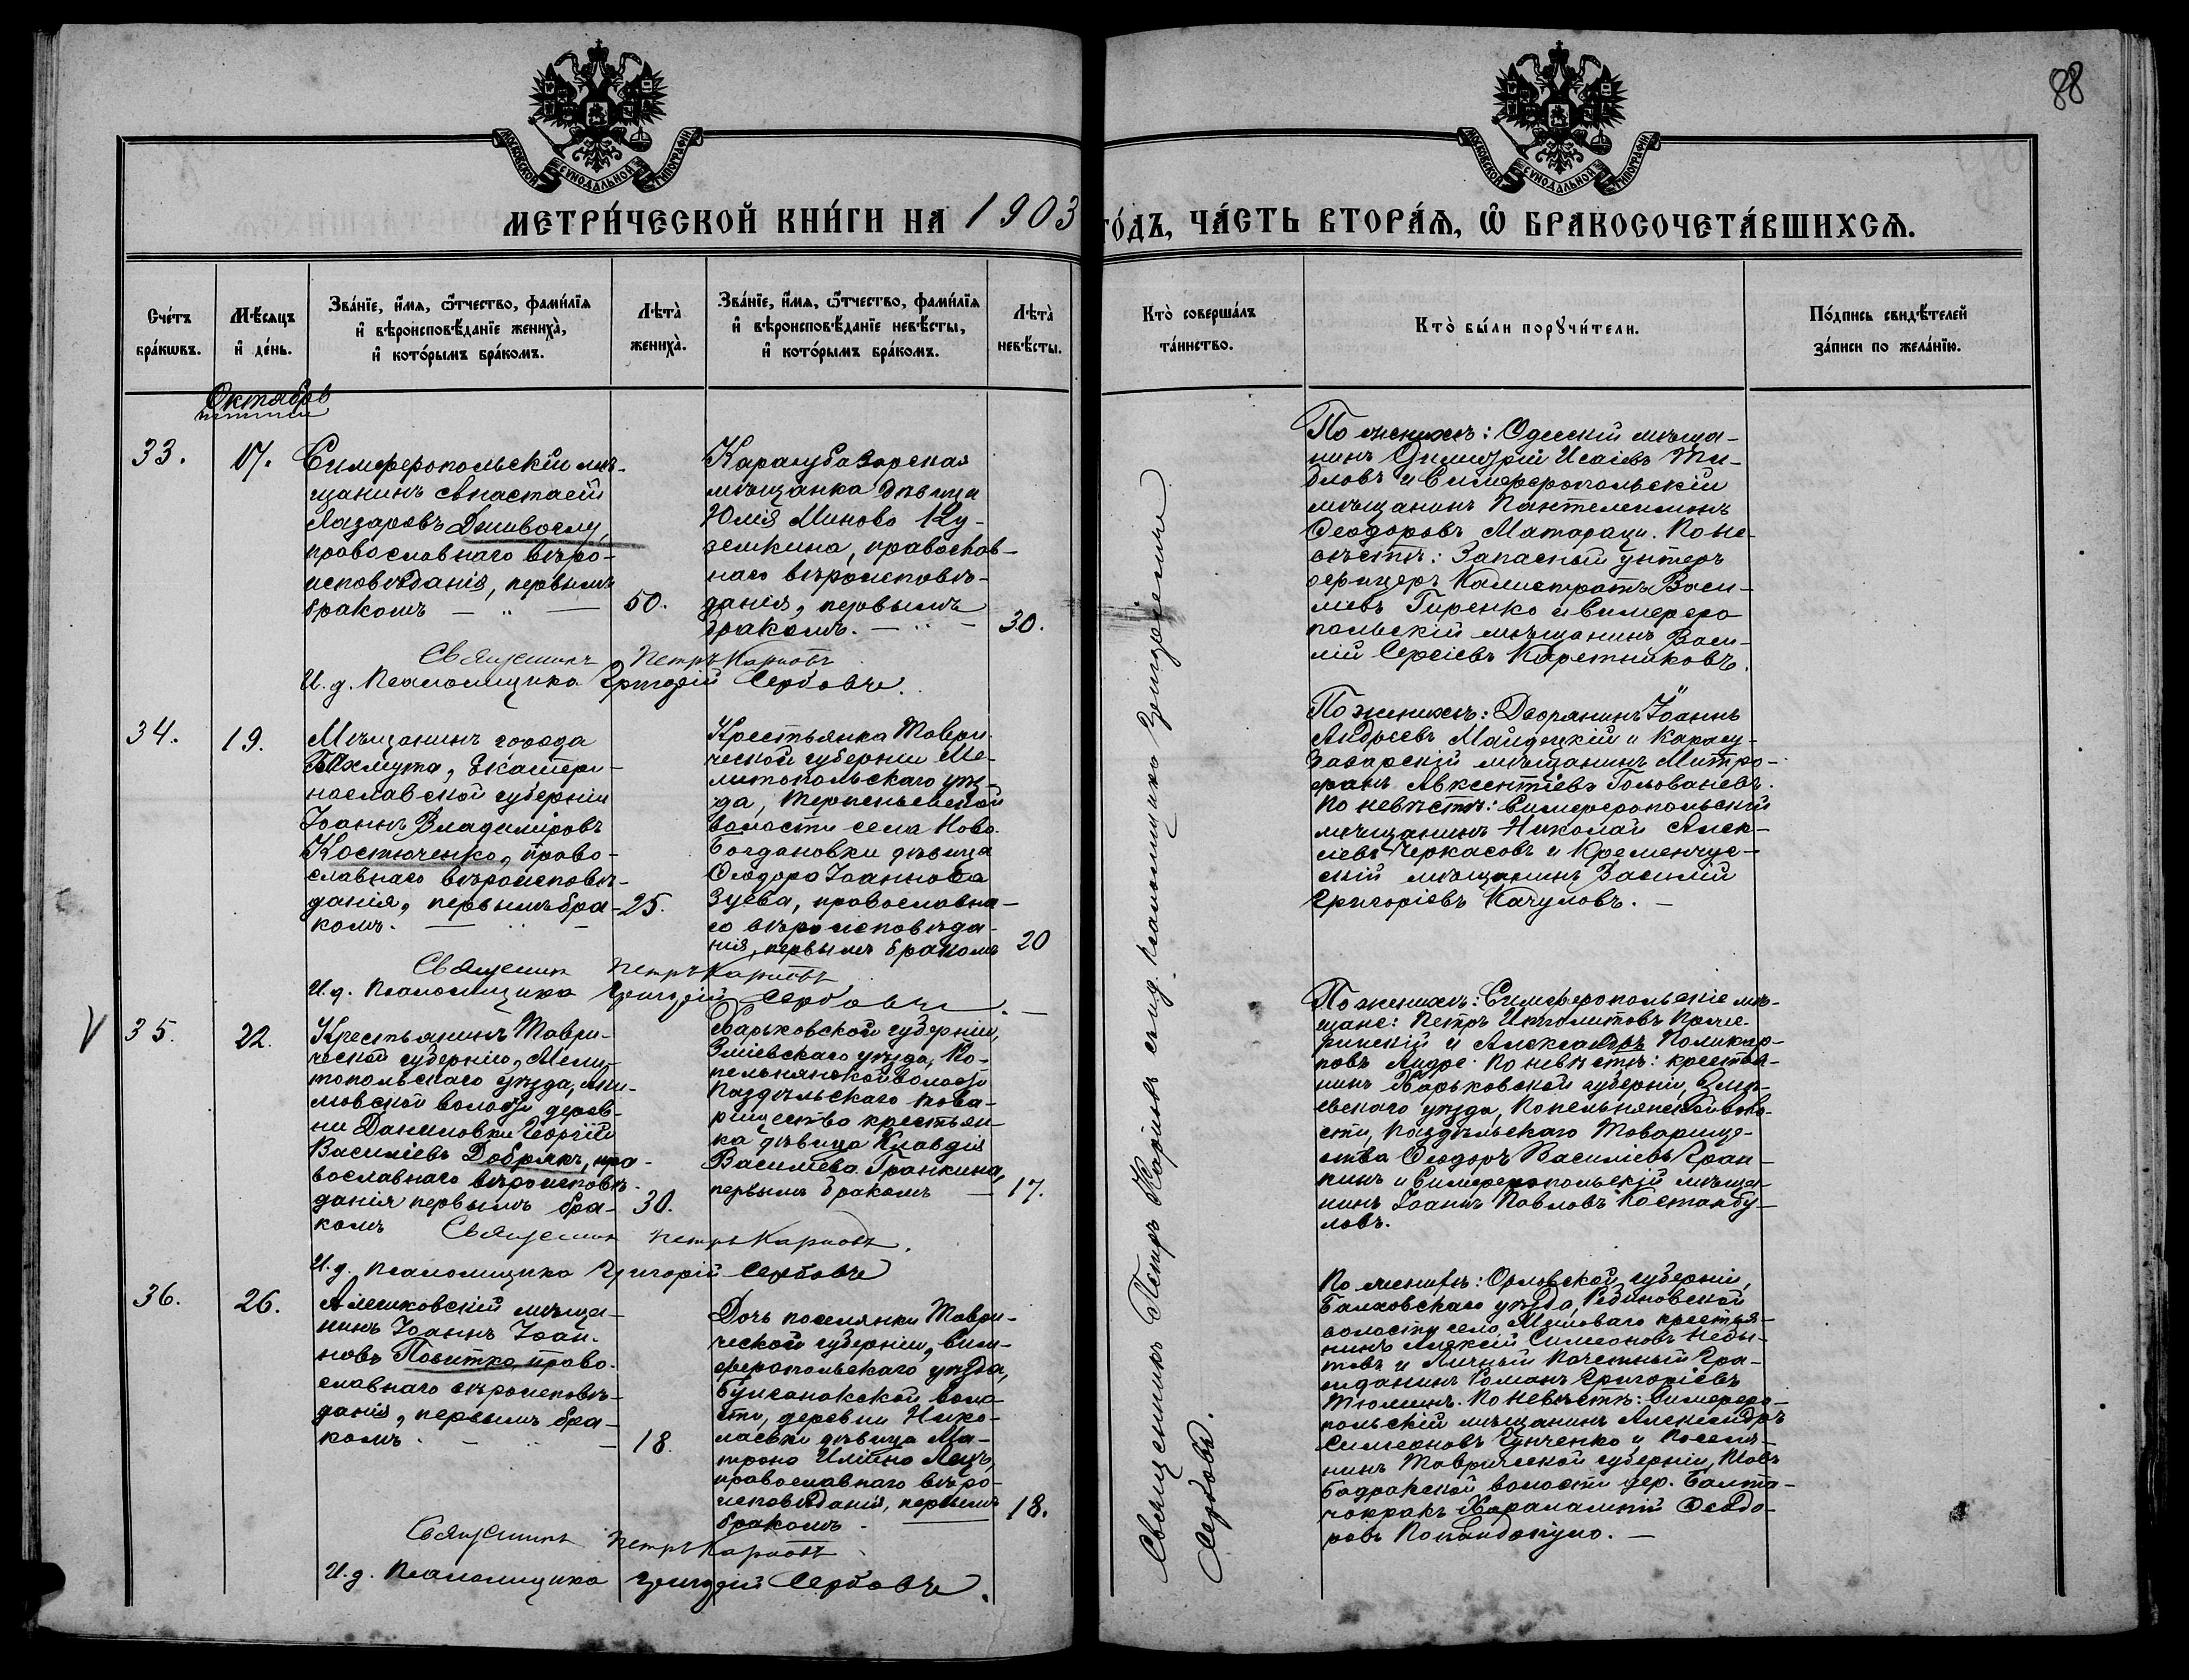 88
МОСКОВСКОЙ СѴНОДАЛЬНОЙ ТИПОГРАФІИ
МОСКОВСКОЙ СѴНОДАЛЬНОЙ ТИПОГРАФІИ
МЕТРИ́ЧЕСКОЙ КНИ́ГИ НА 1903 ГО́ДЪ, ЧА́СТЬ ВТОРА́Ѧ, Ѽ БРАКОСОЧЕТА́ВШИХСѦ.
Сче́тъ бра́кѡвъ.
Мѣ́сѧцъ и҆ де́нь.
Зва́нїе, и҆́мѧ, ѻ҆́тчество, фами́лїѧ
и҆ вѣроисповѣ́данїе жениха̀,
и҆ кото́рымъ бра́комъ.
Лѣ́та̀ жениха̀.
Зва́нїе, и҆́мѧ, ѻ҆́тчество, фами́лїѧ
и҆ вѣроисповѣ́данїе невѣ́сты,
и҆ кото́рымъ бра́комъ.
Лѣ́та̀ невѣ́сты.
Кто̀ соверша́лъ та́инство.
Кто̀ бы́ли порꙋчи́тели.
По́дпись свидѣ́телей за́писи по жела́нїю.
Октябрь
33.
17.
Симферопольскій мѣ-
щанинъ Анастасій
Лазаревъ
православнаго вѣро-
исповѣданія, первымъ
бракомъ — „ —
50.
Карасубазарская
мѣщанка дѣвица
Юлія Минова Ку-
земкина, православ-
наго вѣроисповѣ-
данія, первымъ
бракомъ. — „ —
30.
Священникъ Петръ Карповъ
И. д. Псаломщика Григорій Сербовъ.
По женихѣ: Одесскій мѣща-
нинъ Димитрій Исаіевъ Ти-
Симферопольскій
мѣщанинъ Пантелеимонъ
Феодоровъ Матараци. По не-
вѣстѣ: Запасный унтеръ
офицеръ Калистратъ Васи-
ліевъ Гиренко и Симферо
польскій мѣщанинъ Васи-
лій Сергіевъ Каретниковъ.
34.
19.
Мѣщанинъ города
Бахмута, Екатери-
нославской губерніи
Іоаннъ Владиміровъ
Костюченко, право-
славнаго вѣроисповѣ-
данія, первымъ бра-
комъ. — „ —
25.
Крестьянка Таври-
ческой губерніи Ме-
литопольскаго уѣз-
да, Терпеньевской
волости села Ново-
Богдановки дѣвица
Феодора Іоаннова
Зуева, православна-
го вѣроисповѣда-
нія, первымъ бракомъ
20
Священникъ Петръ Карповъ
И. д. Псаломщика Григорій Сербовъ.
По женихѣ: Дворянинъ Іоаннъ
Андреевъ Майдецкій и Карасу-
базарскій мѣщанинъ Митро-
фанъ Авксентіевъ Голованевъ.
По невѣстѣ: Симферопольскій
мѣщанинъ Николай Алек-
сіевъ Черкасовъ и Кременчуг-
скій мѣщанинъ Василій
Григоріевъ Качуловъ. —
V
35.
22.
Крестьянинъ Таври-
ческой губерніи, Мели-
топольскаго уѣзда, Аки-
мовской волости дерев-
ни Даниловки Георгій
Василіевъ Добрякъ, пра-
вославнаго вѣроисповѣ-
данія первымъ бра-
комъ
30.
Харьковской губерніи,
Зміевскаго уѣзда, По-
пельнянской волости
Раздѣльскаго това-
рищества крестьян-
ка дѣвица Клавдія
Василіева Гранкина,
первымъ бракомъ —
17.
Священникъ Петръ Карповъ.
И. д. Псаломщика Григорій Сербовъ
По женихѣ: Симферопольскіе мѣ-
щане: Петръ Ипполитовъ
и Александръ Поликар-
повъ По невѣстѣ: крестья-
нинъ Харьковской губерніи, Змі-
евскаго уѣзда, Попельнянской воло-
сти, Раздѣльскаго Товарище-
ства Феодоръ Василіевъ Гран-
кинъ и Симферопольскій мѣща-
нинъ Іоаннъ Павловъ Костамбу-
ловъ.
36.
26.
Алешковскій мѣща-
нинъ Іоаннъ Іоан-
новъ Повитко, право-
славнаго вѣроисповѣ-
данія, первымъ бра-
комъ. — „ —
18.
Дочь поселянки Таври-
ческой губерніи, Сим-
феропольскаго уѣзда,
Булганакской воло-
сти, деревни Нико-
лаевки дѣвица Ма-
трона Иліина
православнаго вѣро-
исповѣданія, первымъ
бракомъ. —
18.
Священникъ Петръ Карповъ
И. д. Псаломщика Григорій Сербовъ.
По женихѣ: Орловской губерніи,
Болховскаго уѣзда,
волости села крестья-
нинъ Алексій Симеоновъ
и Личный Почетный Гра-
жданинъ Романъ Григоріевъ
Тюминъ. По невѣстѣ: Симферо-
польскій мѣщанинъ Александръ
Симеоновъ Гунченко и поселя-
нинъ Таврической губерніи,
Бадракской волости дер. Балта-
чокракъ Харалампій Феодо-
ровъ Попандопуло. —
Священникъ Петръ Карповъ съ и. д. псаломщика Григоріемъ
Сербовъ.